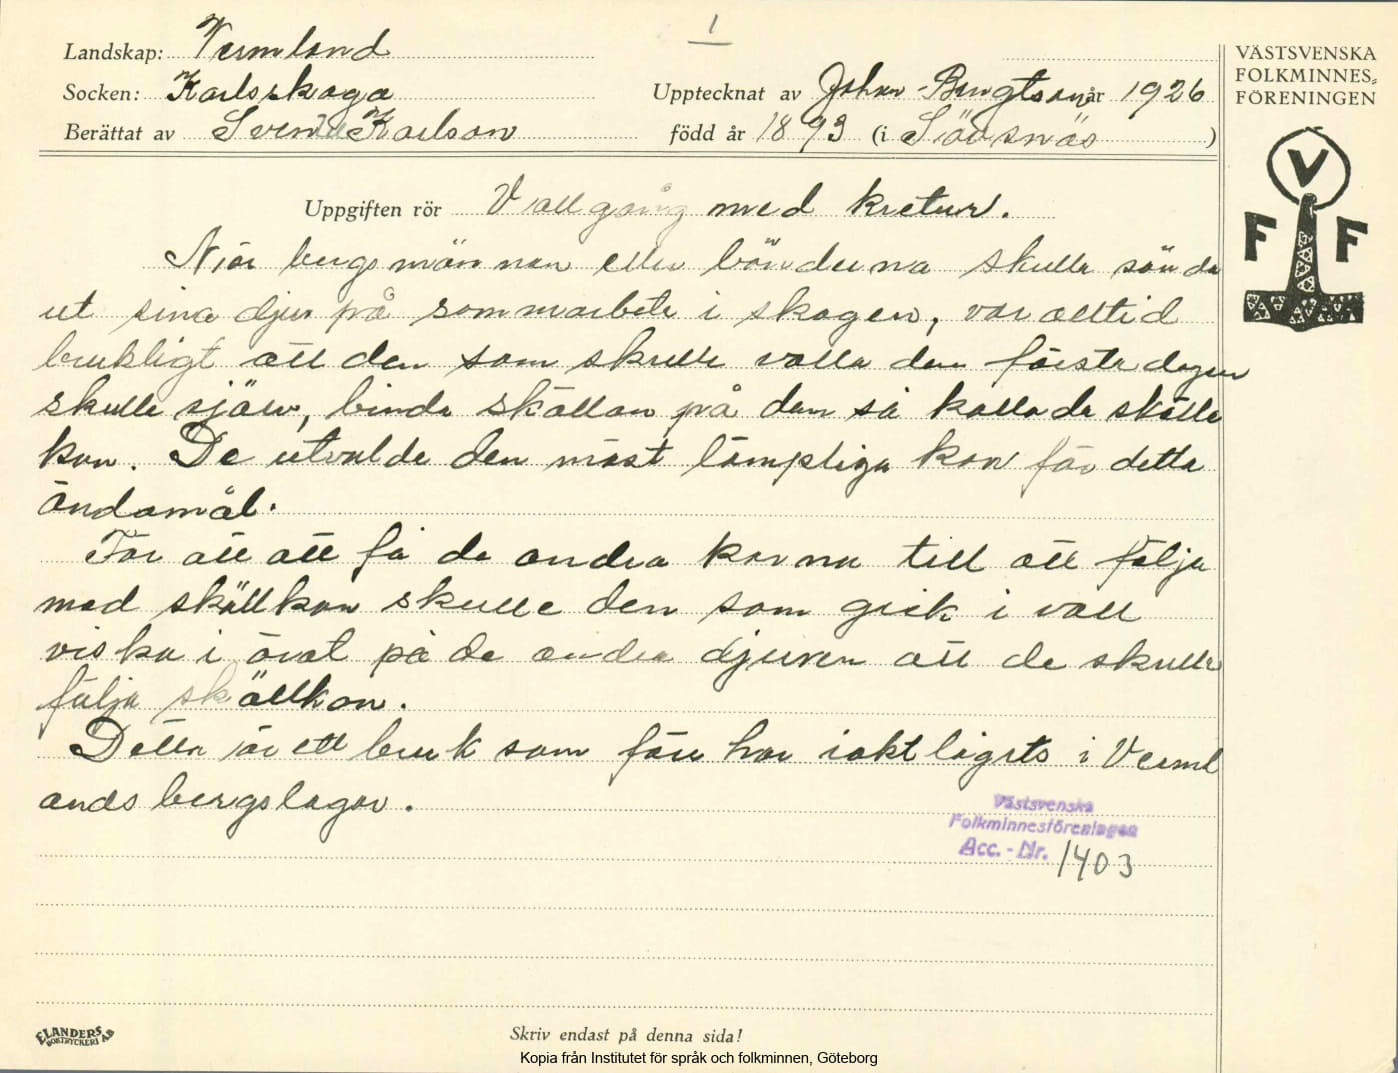 1
Landskap: Vermland
Socken: Karlskoga
Upptecknat av Johan Bengtson år 1926
Berättat av Sven Karlson
född år 1893 (i )
VÄSTSVENSKA
FOLKMINNES-
FÖRENINGEN
V
F F
Uppgiften rör Vallgång med kretur.
När bergsmännen eller bönderna skulle sända
ut sina djur på sommarbete i skogen, var alltid
brukligt att den som skulle valla den första dagen
skulle själv, binda skällan på den så kallade skälle
kon. De utvalde den mäst lämpliga kon för detta
ändamål.
För att att få de andra korna till att följa
med skällkon skulle den som gick i vall
viska i örat på de andra djuren att de skulle
följa skällkon.
Detta är ett bruk som förr har iakttagits i Verml
ands bergslager.
Västsvenska
Folkminnesföreningen
Acc. - Nr. 1403
ELANDERS
BOKTRYCKERI AB
Skriv endast på denna sida!
Kopia från Institutet för språk och folkminnen, Göteborg